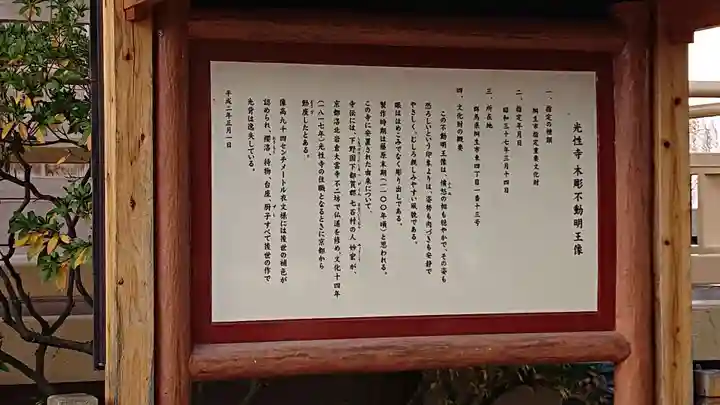 光性寺 木彫不動明王像
一、指定の種類
桐生市指定重要文化財
二、指定年月日
昭和三十七年三月十四日
三、所在地
群馬県桐生市東四丁目一番十三号
四、文化財の概要
この不動明王像は、憤怒の相も穏やかで、その姿も
恐ろしいという印象よりは、姿勢も肉づきも安静で
やさしく、むしろ親しみやすい風貌である。
眼ははめこみでなく彫り出しである。
製作時期は藤原末期(一一〇〇年頃)と思われる。
この寺に安置された由来について、
寺伝には、下野国下都賀郡七石村の人妙宏が、
京都洛北岩倉大雲寺不二坊で仏道を修め、文化十四年
(一八一七年)光性寺の住職となるときに京都から
動座したとある。
像高九十四センチメートル衣文様には後世の補色が
認められ、瓔珞、持物、台座、厨子すべて後世の作で
光背は逸失している。
平成二年三月一日